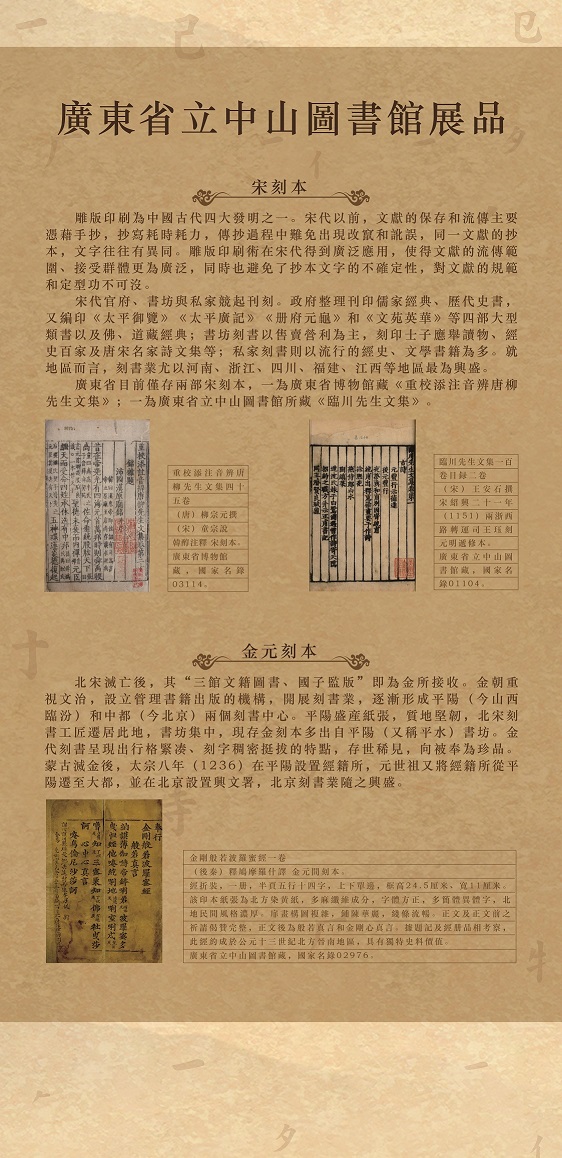 廣東省立中山圖書館展品
宋刻本
雕版印刷為中國古代四大發明之一。宋代以前，文獻的保存和流傳主要
憑藉手抄，抄寫耗時耗力，傳抄過程中難免出現改竄和訛誤，同一文獻的抄
本，文字往往有異同。雕版印刷術在宋代得到廣泛應用，使得文獻的流傳範
圍、接受群體更為廣泛，同時也避免了抄本文字的不確定性，對文獻的規範
和定型功不可沒。
宋代官府、書坊與私家競起刊刻。政府整理刊印儒家經典、歷代史書，
又編印《太平御覽》《太平廣記》《册府元龜》和《文苑英華》等四部大型
類書以及佛、道藏經典；書坊刻書以售賣營利為主，刻印士子應舉讀物、經
史百家及唐宋名家詩文集等；私家刻書則以流行的經史、文學書籍為多。就
地區而言，刻書業尤以河南、浙江、四川、福建、江西等地區最為興盛。
廣東省目前僅存兩部宋刻本，一為廣東省博物館藏《重校添注音辨唐柳
先生文集》；一為廣東省立中山圖書館所藏《臨川先生文集》。
重校添注音辨唐
柳先生文集四十
五卷
（唐）柳宗元撰
（宋）童宗說、
韓醇注釋 宋刻本。
廣東省博物館
藏，國家名錄
03114.
臨川先生文集一百
卷目録二卷
（宋）王安石撰
宋紹興二十一年
（1151）兩浙西
路轉運司王珏刻
元明遞修本。
廣東省立中山圖
書館藏，國家名
錄01104.
金元刻本
北宋滅亡後，其“三館文籍圖書、國子監版”即為金所接收。金朝重
視文治，設立管理書籍出版的機構，開展刻書業，逐漸形成平陽（今山西
臨汾）和中都（今北京）兩個刻書中心。平陽盛産紙張，質地堅韌，北宋刻
書工匠遷居此地，書坊集中，現存金刻本多出自平陽（又稱平水）書坊。金
代刻書呈現出行格緊凑、刻字稠密挺拔的特點，存世稀見，向被奉為珍品。
蒙古滅金後，太宗八年（1236）在平陽設置經籍所，元世祖又將經籍所從平
陽遷至大都，並在北京設置興文署，北京刻書業隨之興盛。
金剛般若波羅蜜經一卷
（後秦）釋鳩摩羅什譯 金元間刻本。
經折裝，一册，半頁五行十四字，上下單邊，框高24.5厘米，寬11厘米。
該印本紙張為北方染黄紙，多麻纖維成分，字體方正，多簡體異體字，北
地民間風格濃厚。扉畫構圖複雜，鋪陳華麗，綫條流暢。正文及正文前之
祈請偈贊完整，正文後為般若真言和金剛心真言。據題記及經册品相考察，
此經約成於公元十三世紀北方晉南地區，具有獨特史料價值。
廣東省立中山圖書館藏，國家名錄02976.